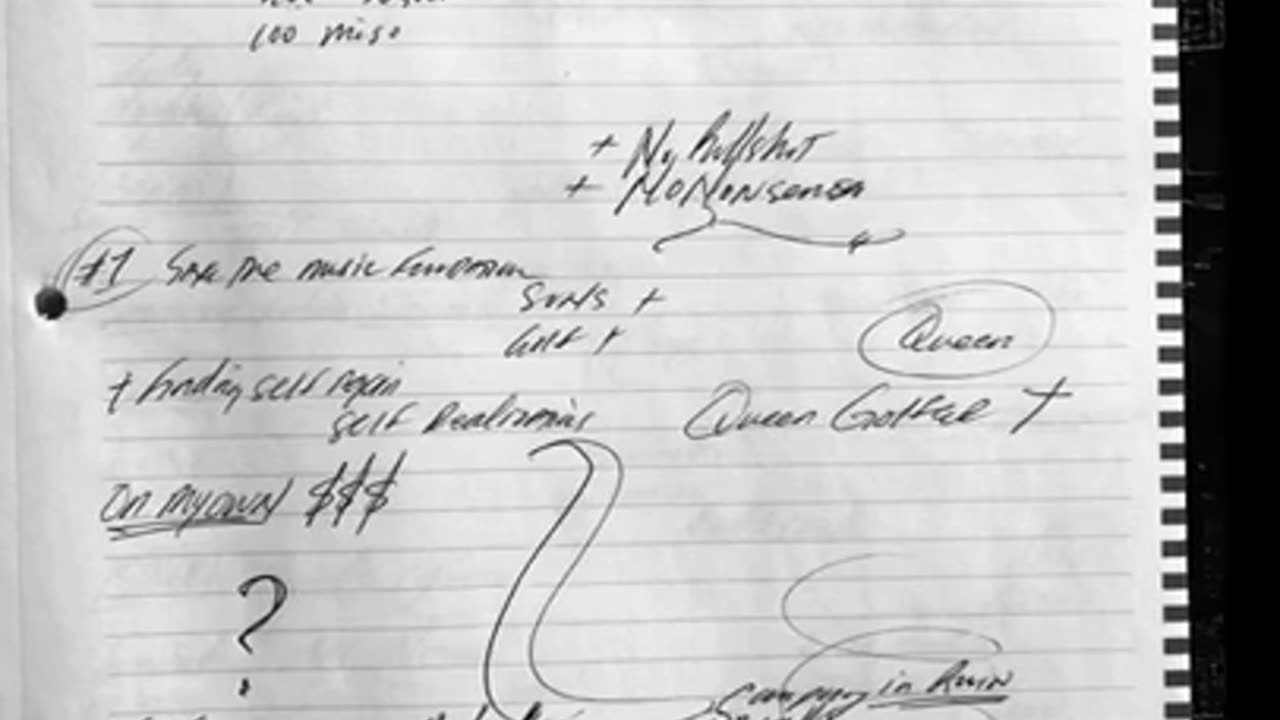 100 misc
+ No Bullshit
+ No Nonsense
#1 Save the music foundation
SUNS +
Golf +
Queen
+ finding self again
self Realization
Queen Golfer +
On my own $$$
?
Company in Ruin